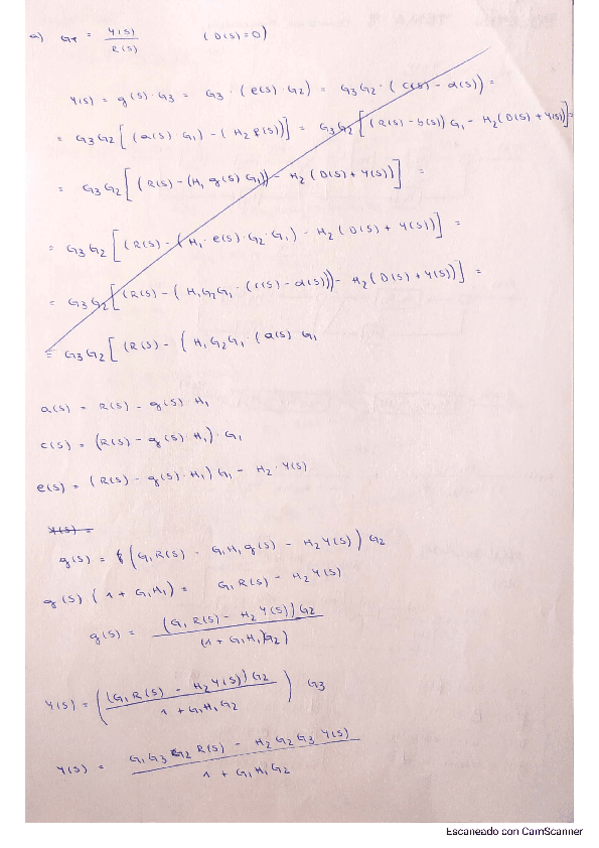 a) GT = Y(s) / R(s) (D(s)=0)
Y(s) = g(s)·G3 = G3·(e(s)·G2) = G3G2·(c(s) - d(s)) =
= G3G2[(a(s)·G1) - (H2 f(s))] = G3G2[(R(s) - b(s))G1 - H2(D(s) + Y(s))] =
= G3G2[(R(s) - (H1 g(s) G1)) - H2(D(s) + Y(s))] =
= G3G2[(R(s) - (H1·e(s)·G2·G1) - H2(D(s) + Y(s))] =
= G3G2[(R(s) - (H1G2G1·(c(s) - d(s))) - H2(D(s) + Y(s))] =
= G3G2[(R(s) - (H1G2G1·(a(s) G1
a(s) = R(s) - g(s)·H1
c(s) = (R(s) - g(s)·H1)·G1
e(s) = (R(s) - g(s)·H1)G1 - H2·Y(s)
Y(s) =
g(s) = (G1R(s) - G1H1g(s) - H2Y(s))G2
g(s)(1 + G1H1) = G1R(s) - H2Y(s)
g(s) = (G1R(s) - H2Y(s))G2 / (1 + G1H1G2)
Y(s) = ((G1R(s) - H2Y(s))G2 / 1 + G1H1G2) G3
Y(s) = G1G3G2R(s) - H2G2G3Y(s) / 1 + G1H1G2
Escaneado con CamScanner